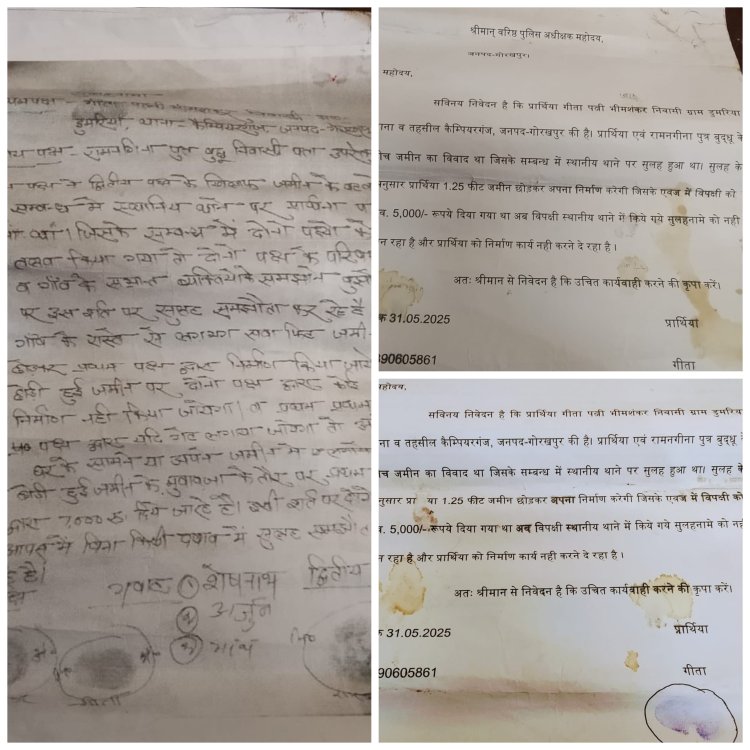 डुमरिया, थाना - कैम्पियरगंज, जनपद - गोरखपुर
पक्ष - रामनगीना पुत्र बुद्धू निवासी पता उपरोक्त
पक्ष ने द्वितीय पक्ष के खिलाफ जमीन के
सम्बन्ध में स्थानिय थाने पर प्रार्थना प
जिसके सम्बन्ध में दोनो पक्षो को
तलब किया गया तो दोनो पक्ष के परिवार
व गाँव के सभ्रान्त व्यक्तियो के समझाने बुझाने
पर इस शर्त पर सुलह समझौता कर रहे है
गाँव के रास्ते से लगभग सवा फिट जमी
छोडकर प्रथम पक्ष द्वारा निर्माण किया जाये
छोडी हुई जमीन पर दोनो पक्ष द्वारा कोई
निर्माण नही किया जायेगा। व प्रथम
पक्ष द्वारा यदि गेट लगाया जायेगा तो
घर के सामने या अपने जमीन में
छोडी हुई जमीन के मुवावजा के तौर पर प्रथम
7000 रु दिये जा रहे है। इसी शर्त पर दोनो
आपस में बिना किसी दबाव में सुलह समझौता
है।
गवाह ① शेषनाथ द्वितीय
② अर्जुन
③
गीता
श्रीमान् वरिष्ठ पुलिस अधीक्षक महोदय,
जनपद-गोरखपुर।
महोदय,
सविनय निवेदन है कि प्रार्थिया गीता पत्नी भीमशंकर निवासी ग्राम डुमरिया
ाना व तहसील कैम्पियरगंज, जनपद-गोरखपुर की है। प्रार्थिया एवं रामनगीना पुत्र बुद्धू के
ीच जमीन का विवाद था जिसके सम्बन्ध में स्थानीय थाने पर सुलह हुआ था। सुलह के
नुसार प्रार्थिया 1.25 फीट जमीन छोड़कर अपना निर्माण करेगी जिसके एवज में विपक्षी को
व. 5,000/- रूपये दिया गया था अब विपक्षी स्थानीय थाने में किये गये सुलहनामे को नही
न रहा है और प्रार्थिया को निर्माण कार्य नही करने दे रहा है।
अतः श्रीमान से निवेदन है कि उचित कार्यवाही करने की कृपा करें।
क 31.05.2025
प्रार्थिया
90605861
गीता
महोदय,
सविनय निवेदन है कि प्रार्थिया गीता पत्नी भीमशंकर निवासी ग्राम डुमरिया
ना व तहसील कैम्पियरगंज, जनपद-गोरखपुर की है। प्रार्थिया एवं रामनगीना पुत्र बुद्धू के
च जमीन का विवाद था जिसके सम्बन्ध में स्थानीय थाने पर सुलह हुआ था। सुलह के
नुसार प्रा या 1.25 फीट जमीन छोड़कर अपना निर्माण करेगी जिसके एवज में विपक्षी को
व. 5,000/- रूपये दिया गया था अब विपक्षी स्थानीय थाने में किये गये सुलहनामे को नही
न रहा है और प्रार्थिया को निर्माण कार्य नही करने दे रहा है।
अतः श्रीमान से निवेदन है कि उचित कार्यवाही करने की कृपा करें।
क 31.05.2025
प्रार्थिया
90605861
गीता